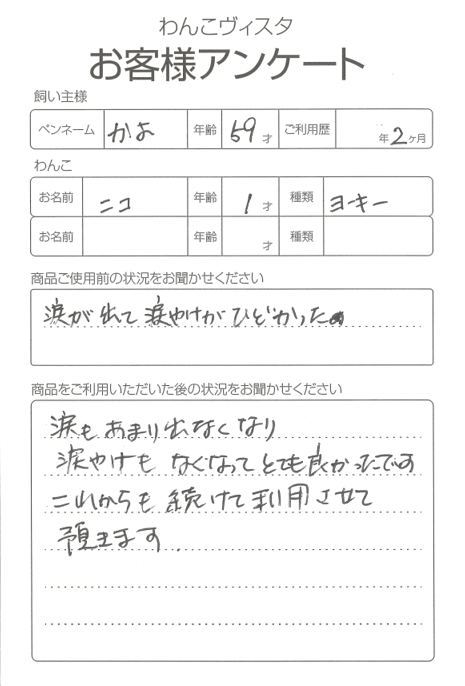 わんこヴィスタ
お客様アンケート
飼い主様
ペンネーム かよ 年齢 59 才 ご利用歴 年 2 ヶ月
わんこ
お名前 ニコ 年齢 1 才 種類 ヨーキー
お名前 年齢 才 種類
商品ご使用前の状況をお聞かせください
涙が出て涙やけがひどかった。
商品をご利用いただいた後の状況をお聞かせください
涙もあまり出なくなり
涙やけもなくなってとても良かったです
これからも続けて利用させて
頂きます.